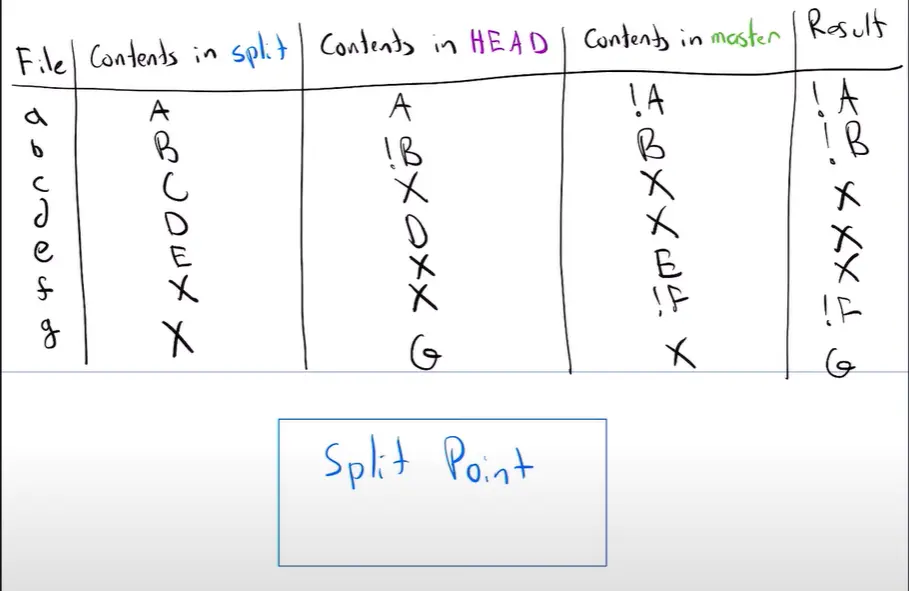 File Contents in split Contents in HEAD Contents in master Result
a A A !A !A
b B !B B !B
c C X X X
d D D X X
e E X E X
f X X !F !F
g X G X G
Split Point